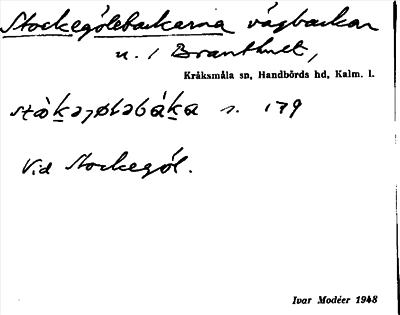 Stockegölebackarna vägbackar
n. / Branthult,
Kråksmåla sn, Handbörds hd, Kalm. l.
s. 179
Vid Stockegöl.
Ivar Modéer 1948